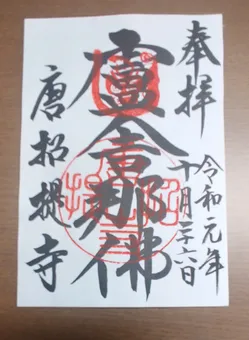 奉拝
令和元年
十月二十六日
盧舎那佛
唐招提寺